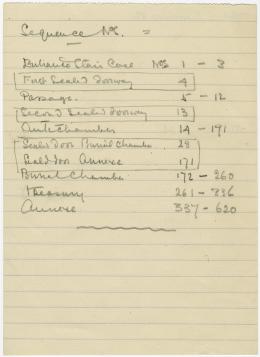 Sequence Nos. =
Entrance Stair Case Nos 1 - 3
First Sealed doorway 4
Passage. 5 - 12
Second Sealed doorway 13
Antechamber 14 - 171
Sealed door Burial Chamber 28
Sealed door Annexe 171
Burial Chamber 172 - 260
Treasury 261 - 336
Annexe 337 - 620